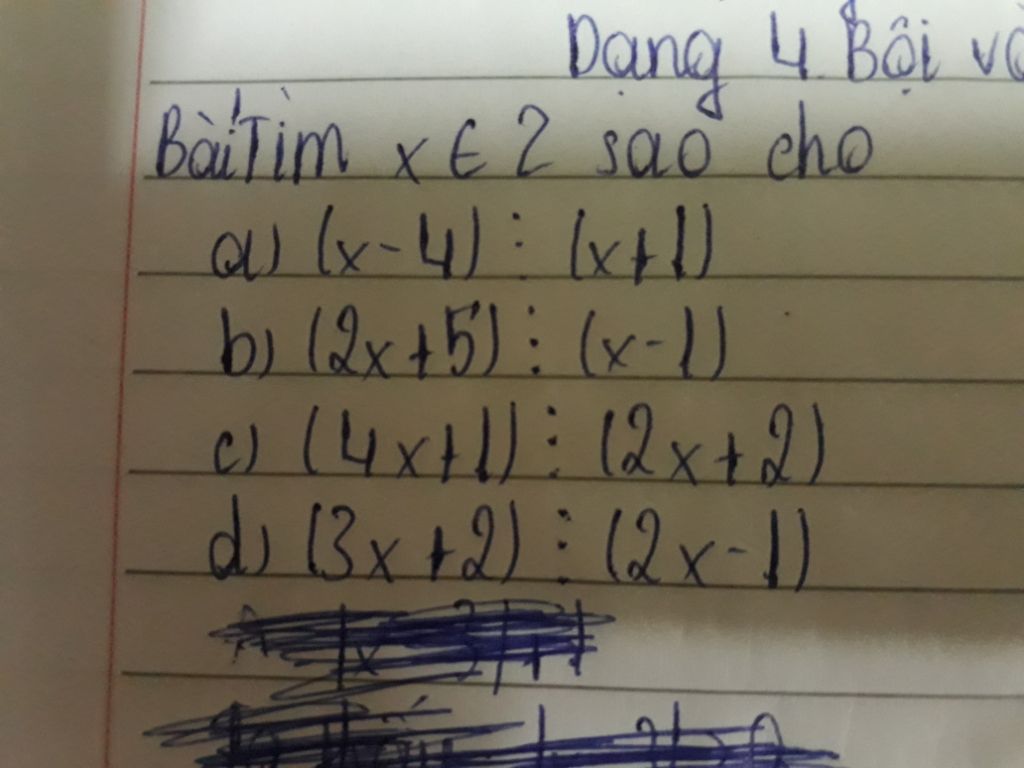 Dạng 4. Bội và
Bài 1 Tìm x ∈ Z sao cho
a) (x-4) ⋮ (x+1)
b) (2x+5) ⋮ (x-1)
c) (4x+1) ⋮ (2x+2)
d) (3x+2) ⋮ (2x-1)